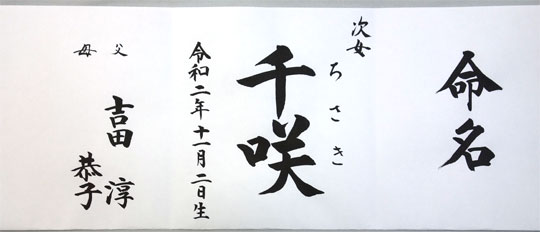 命名
次女
ちさき
千咲
令和二年十一月二日生
父 吉田 淳
母 恭子